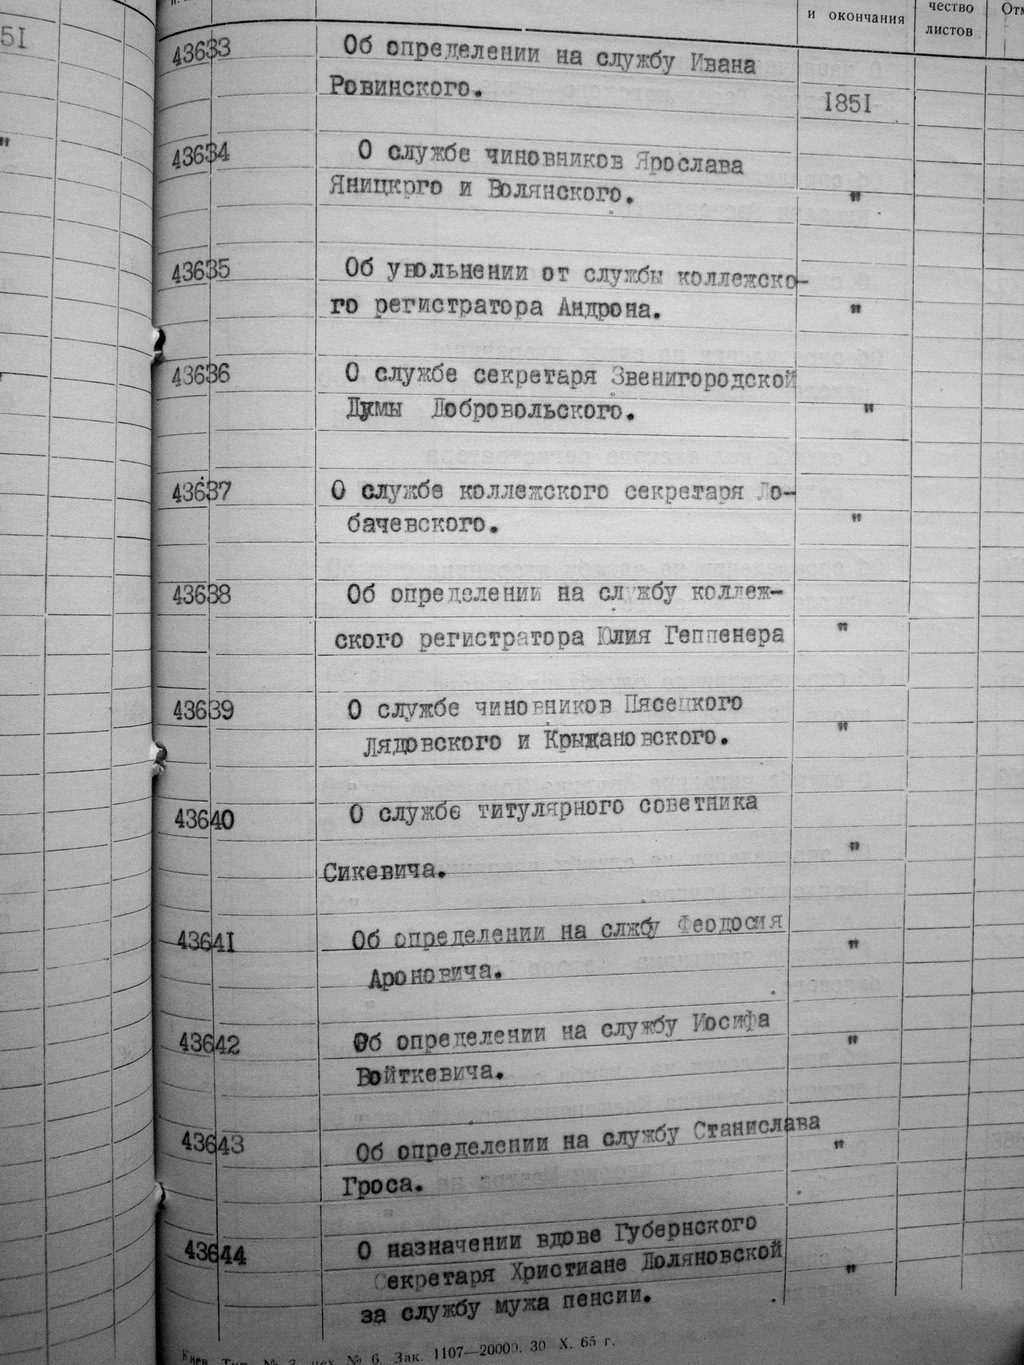 51
и окончания
чество
листов
43633 Об определении на службу Ивана
Ровинского.
1851
43634 О службе чиновников Ярослава
Яницкрго и Волянского. "
43635 Об увольнении от службы коллежско-
го регистратора Андрона. "
43636 О службе секретаря Звенигородской
Думы Добровольского. "
43637 О службе коллежского секретаря Ло-
бачевского. "
43638 Об определении на службу коллеж-
ского регистратора Юлия Геппенера "
43639 О службе чиновников Пясецкого
Лядовского и Крыжановского. "
43640 О службе титулярного советника
Сикевича. "
43641 Об определении на слжбу Феодосия
Ароновича. "
43642 Об определении на службу Иосифа
Войткевича. "
43643 Об определении на службу Станислава
Гроса. "
43644 О назначении вдове Губернского
Секретаря Христиане Доляновской
за службу мужа пенсии. "
№ 6. Зак. 1107—20000. 30 X. 65 г.